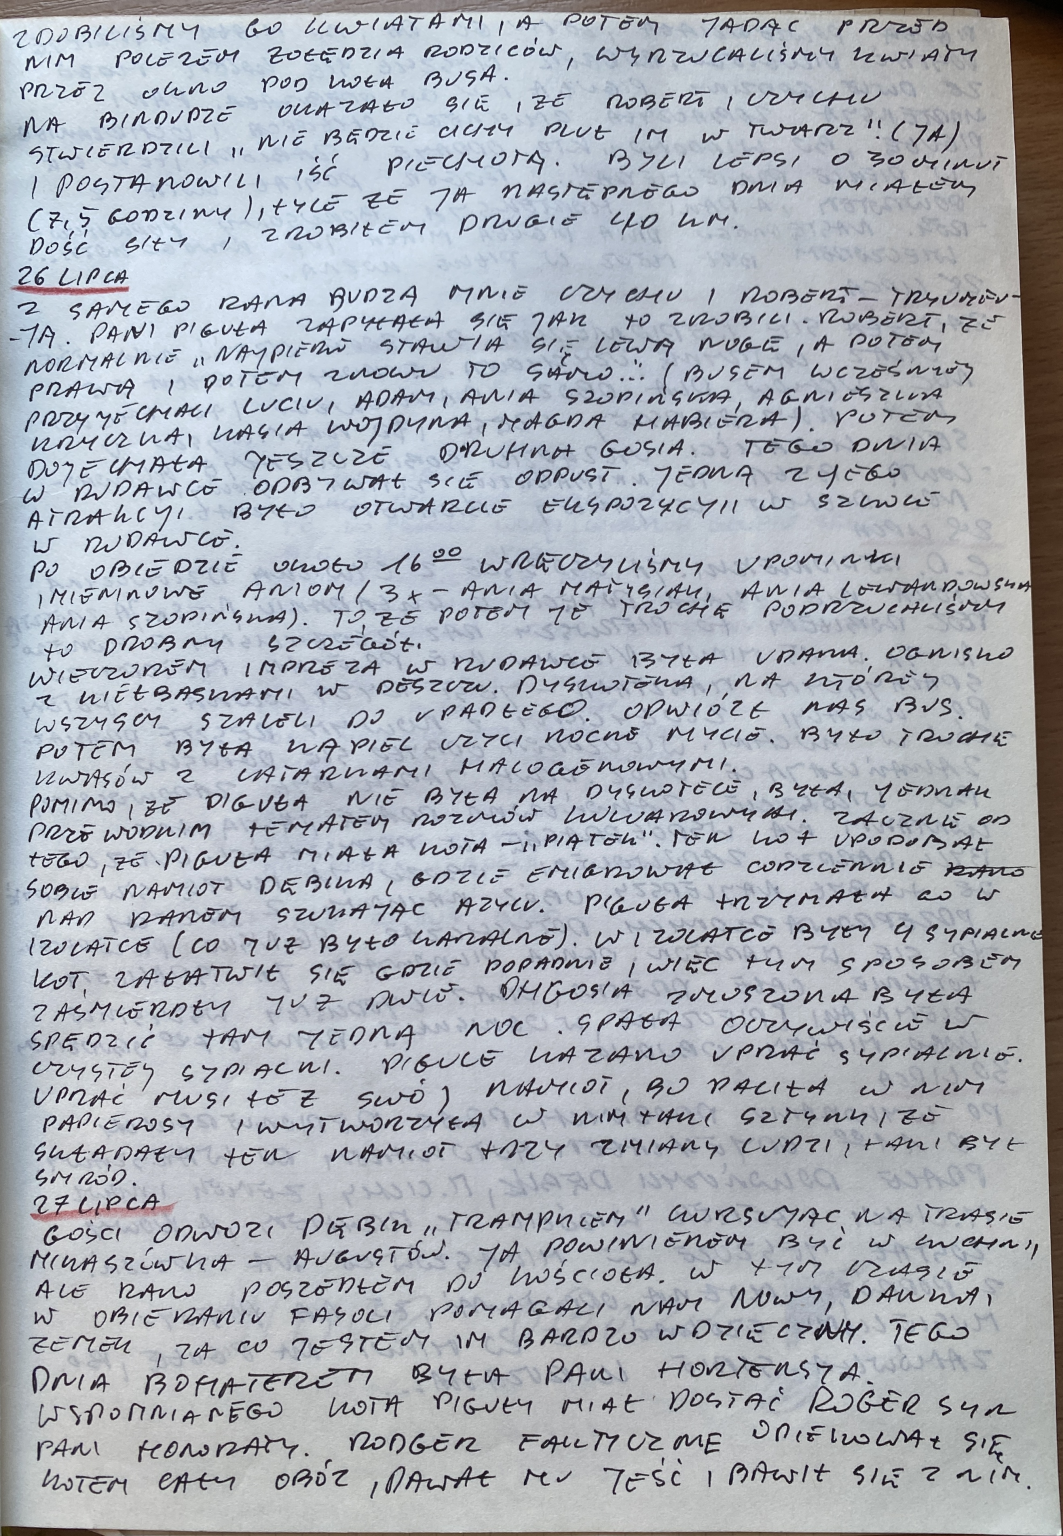 ZDOBILIŚMY GO KWIATAMI, A POTEM JADĄC PRZED
NIM POLEZEM ŻOŁĘDZIA RODZICÓW, WYRZUCALIŚMY KWIATY
PRZEZ OKNO POD KOŁA BUSA.
NA BINDUDZE OKAZAŁO SIĘ, ŻE ROBERT, CZYCHU
STWIERDZILI „NIE BĘDZIE CICHY PLUŁ IM W TWARZ"! (JA)
I POSTANOWILI IŚĆ PIECHOTĄ. BYLI LEPSI O 30 MINUT
(7,5 GODZINY), TYLE ŻE JA NASTĘPNEGO DNIA MIAŁEM
DOŚĆ SIŁY I ZROBIŁEM DRUGIE 40 KM.
26 LIPCA
Z SAMEGO RANA BUDZĄ MNIE CZYCHU I ROBERT – TRYUMFU-
-JĄ. PANI PIGUŁA ZAPYTAŁA SIĘ JAK TO ZROBILI. ROBERT, ŻE
NORMALNIE „NAJPIERW STAWIA SIĘ LEWĄ NOGĘ, A POTEM
PRAWĄ I POTEM ZNOWU TO SAMO..." (BUSEM WCZEŚNIEJ
PRZYJECHALI LUCIU, ADAM, ANIA SZOPIŃSKA, AGNIESZKA
KRYCZKA, KASIA WOJDYNA, MAGDA HABIERA). POTEM
DOJECHAŁA JESZCZE DRUHNA GOSIA. TEGO DNIA
W RUDAWCE ODBYWAŁ SIĘ ODPUST. JEDNĄ Z JEGO
ATRAKCJI BYŁO OTWARCIE EKSPOZYCJI W SZKOLE
W RUDAWCE.
PO OBIEDZIE OKOŁO 16⁰⁰ WRĘCZYLIŚMY UPOMINKI
IMIENINOWE ANIOM (3x – ANIA MATYSIAK, ANIA LEWANDOWSKA
ANIA SZOPIŃSKA). TO, ŻE POTEM JE TROCHĘ PODRZUCALIŚMY
TO DROBNY SZCZEGÓŁ.
WIECZOREM IMPREZA W RUDAWCE BYŁA UDANA. OGNISKO
Z KIEŁBASKAMI W DESZCZU. DYSKOTEKA, NA KTÓREJ
WSZYSCY SZALELI DO UPADŁEGO. ODWIÓZŁ NAS BUS.
POTEM BYŁA KĄPIEL CZYLI NOCNE MYCIE. BYŁO TROCHĘ
KWASÓW Z LATARKAMI HALOGENOWYMI.
POMIMO, ŻE PIGUŁA NIE BYŁA NA DYSKOTECE, BYŁA, JEDNAK
PRZEWODNIM TEMATEM ROZMÓW KULUAROWYCH. ZACZNĘ OD
TEGO, ŻE PIGUŁA MIAŁA KOTA – „PIĄTEK". TEN KOT UPODOBAŁ
SOBIE NAMIOT DĘBIKA, GDZIE EMIGROWAŁ CODZIENNIE RANO
NAD RANEM SZUKAJĄC AZYLU. PIGUŁA TRZYMAŁA GO W
IZOLATCE (CO JUŻ BYŁO KARALNE). W IZOLATCE BYŁY 4 SYPIALNIE
KOT, ZAŁATWIŁ SIĘ GDZIE POPADNIE, WIĘC TYM SPOSOBEM
ZAŚMIERDŁY JUŻ DWIE. DH GOSIA ZMUSZONA BYŁA
SPĘDZIĆ TAM JEDNĄ NOC. SPAŁA OCZYWIŚCIE W
CZYSTEJ SYPIALNI. PIGULE KAZANO UPRAĆ SYPIALNIE.
UPRAĆ MUSI TEŻ SWÓJ NAMIOT, BO PALIŁA W NIM
PAPIEROSY I WYTWORZYŁA W NIM TAKI SZTYNK, ŻE
SKŁADAŁY TEN NAMIOT TRZY ZMIANY LUDZI, TAKI BYŁ
SMRÓD.
27 LIPCA
GOŚCI ODWOZI DĘBIK „TRAMPKIEM" KURSUJĄC NA TRASIE
MIKASZÓWKA – AUGUSTÓW. JA POWINIENEM BYĆ W KUCHNI,
ALE RANO POSZEDŁEM DO KOŚCIOŁA. W TYM CZASIE
W OBIERANIU FASOLI POMAGALI NAM NOWY, DANKA,
ZEMEK, ZA CO JESTEM IM BARDZO WDZIĘCZNY. TEGO
DNIA BOHATEREM BYŁA PANI HORTENSJA.
WSPOMNIANEGO KOTA PIGUŁY MIAŁ DOSTAĆ ROGER SYN
PANI HONORATY. RODGER FAKTYCZNIE OPIEKOWAŁ SIĘ
KOTEM CAŁY OBÓZ, DAWAŁ MU JEŚĆ I BAWIŁ SIĘ Z NIM.